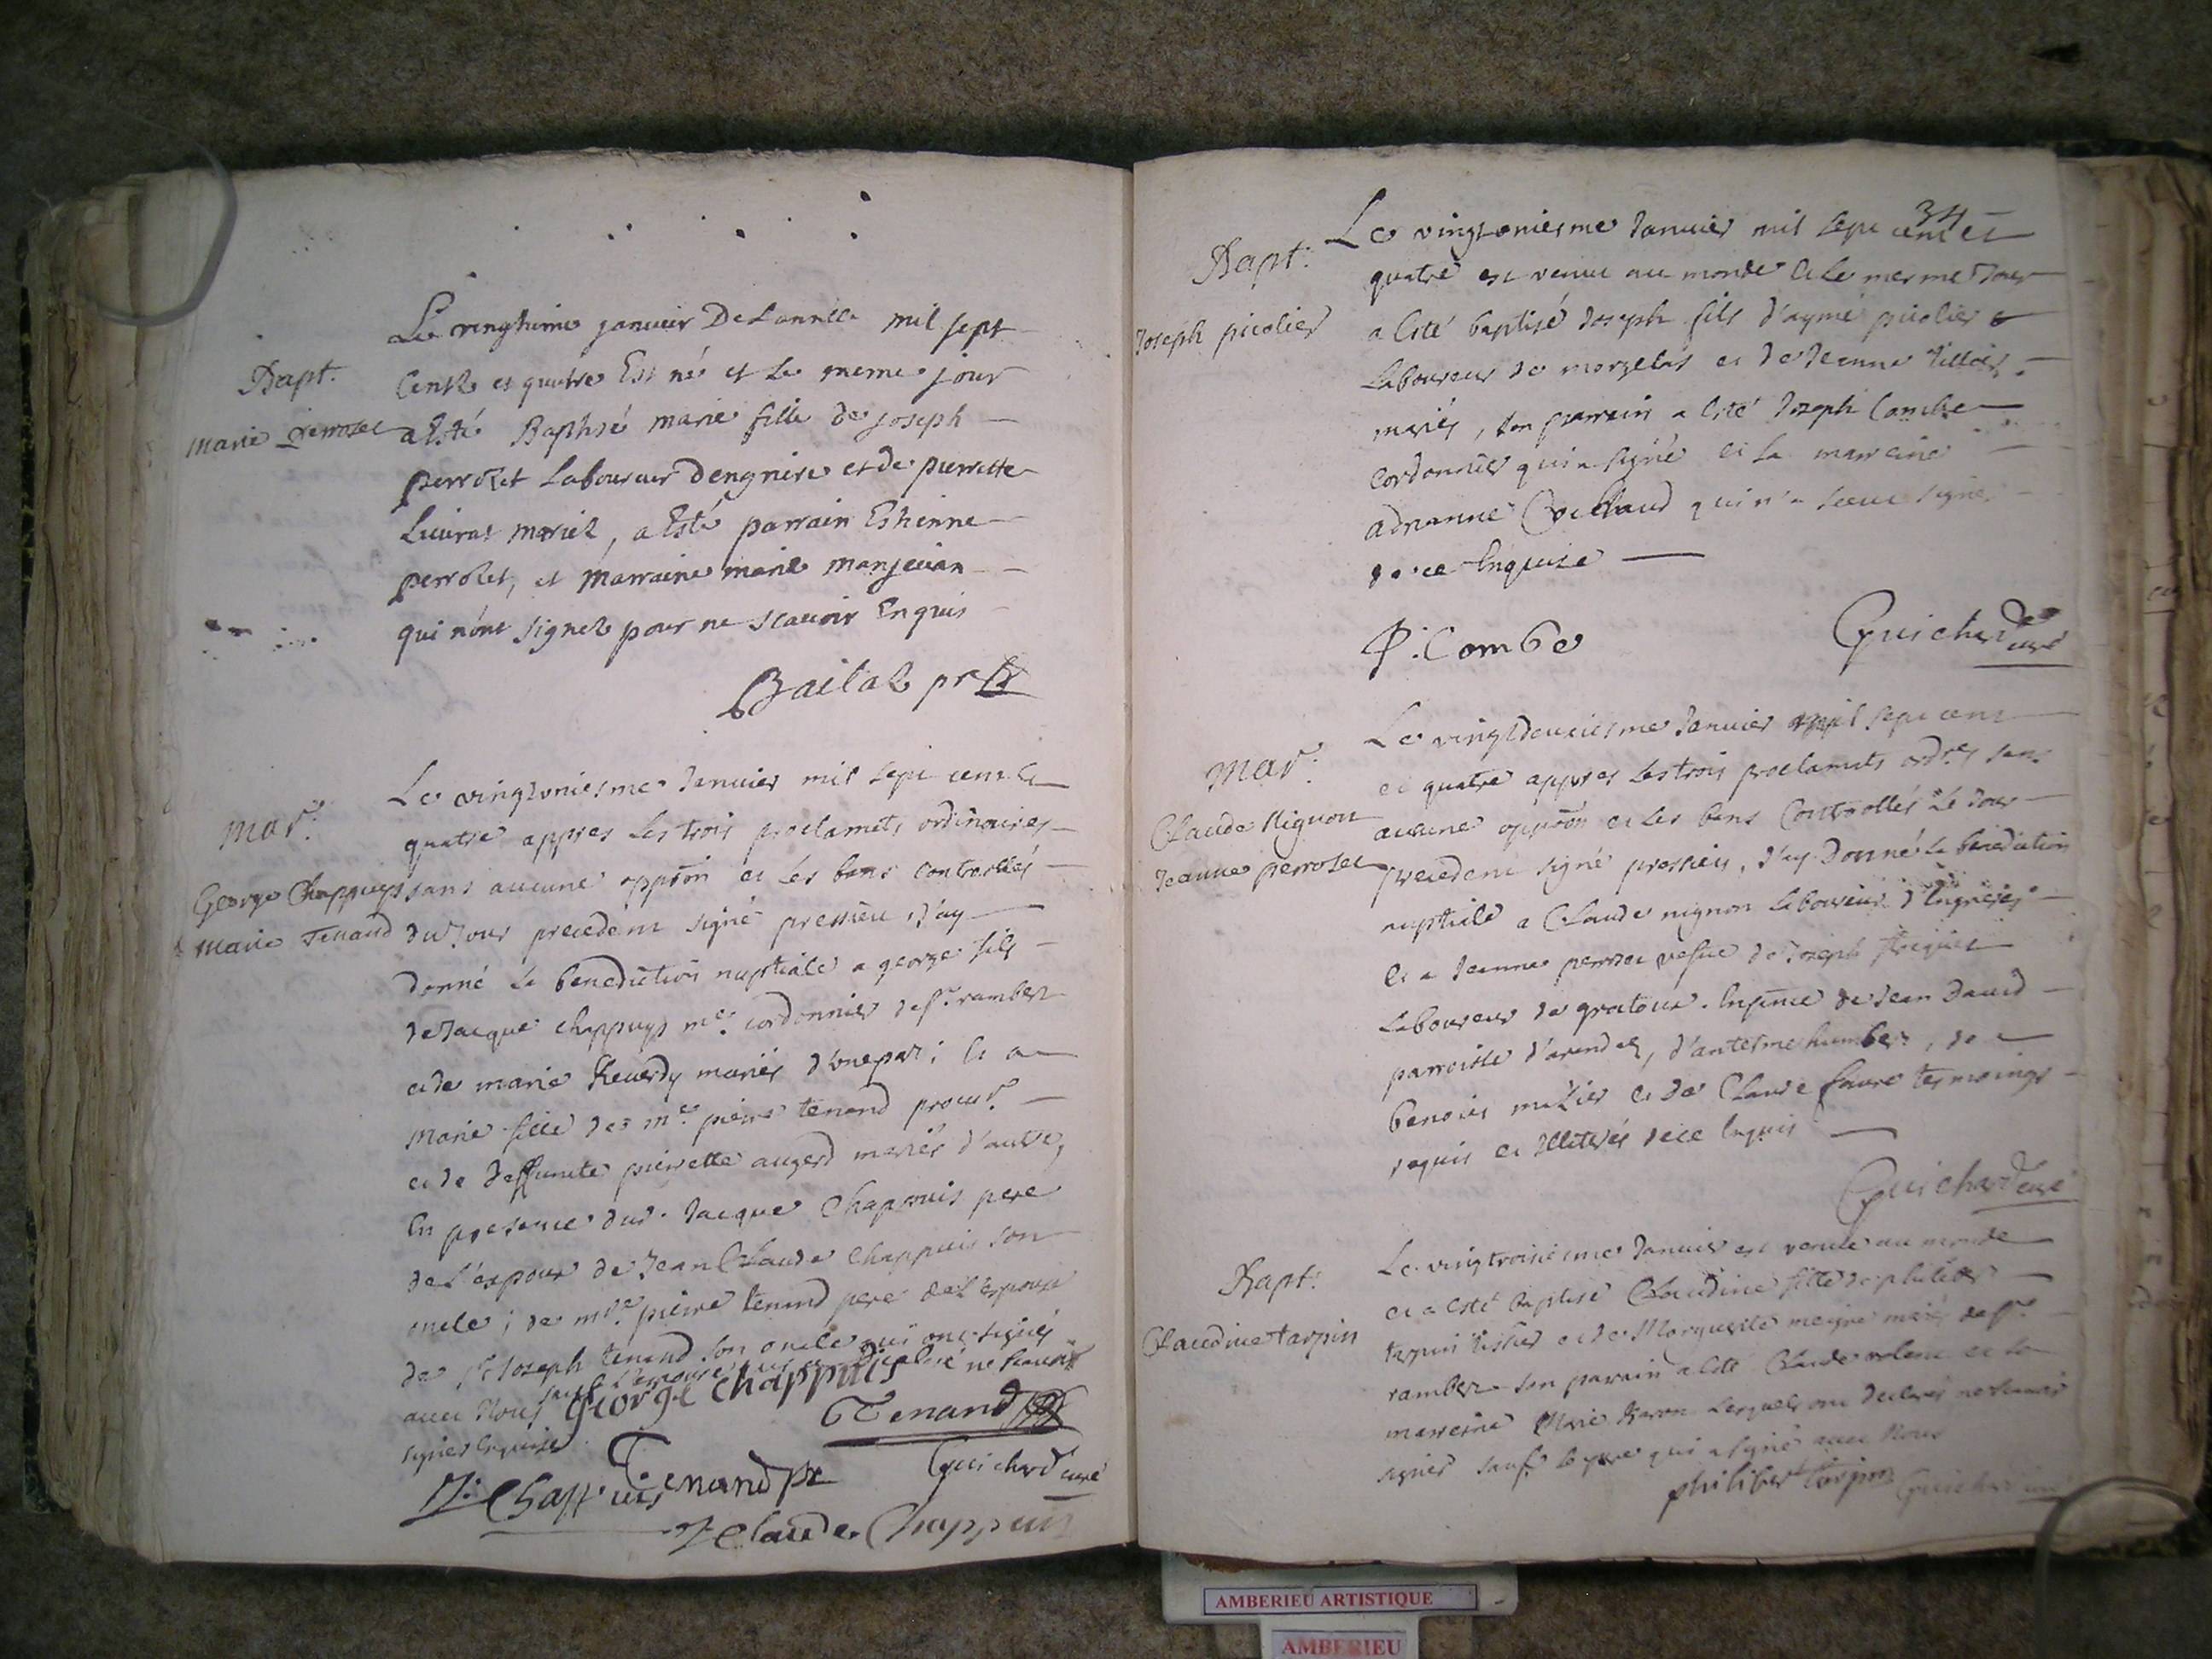 Bapt.
Marie Perrozet
Le vingtieme janvier De Lannée mil sept
Centz et quatre Est né et Le meme jour
a Esté Baptisé marie fille de joseph
perrozet Laboureur Dengnire et de pierrette
mariez, a Esté parrain Estienne
perrozet, et Marraine marie manjeuan
qui n'ont signez pour ne scauoir Enquis
pr
Mar.
George Chappuys
Marie Tenand
Le vingtuniesme Januier mil sept cent et
quatre appres Les trois proclamats ordinaires
sans aucune oppoon et Les bans controollés
du Jour precedent signé pressieu, J'ay
donné La benediction nuptiale a george fils
de Jacque Chappuys me. cordonnier de st. rambert
et de marie Reuerdy mariés d'une part; et a
Marie fille de me. pierre tenand procur.
et de deffuncte pierrette augerd mariés d'autre,
En presence dud. Jacque Chappuis pere
de l'espoux de Jean Claude Chappuis son
oncle; de me. pierre tenand pere de L'espouse
de st. Joseph tenand son oncle qui ont signés
auec Nous sauf L'espouse qui a declaré ne scauoir
signer Enquise
George Chappuis
Tenand
J. Chappuis
Tenand pr
Guichard curé
J Claude Chappuis
34
Bapt.
Joseph picolier
Le vingtuniesme Januier mil sept cent et
quatre est venu au monde et Le mesme Jour
a Esté baptisé Joseph fils d'aymé picolier
Laboureur de morgelas et de Jeanne
mariés, son parrain a Esté Joseph Combe
cordonnier qui a signé et La marraine
adrianne qui n'a sceu signer
de ce Enquise
J. Combe
Guichard curé
Mar.
Claude Nignon
Jeanne perrozet
Le vingtdeuxiesme Januier mil sept cent
et quatre appres Les trois proclamats ordres sans
aucune oppoon et Les bans Controollés Le Jour
precedent signé pressieu, J'ay Donné La benediction
nuptiale a Claude nignon Laboureur d'Engnieres
et a Jeanne perrozet vefue de Joseph
Laboureur de gratoux. En pnce de Jean Dauid
parroisse d'arandas, d'antesme humbert, de
benoist et de Claude faure tesmoings
requis et Illiterés de ce Enquis
Guichard curé
Bapt.
Claudine tarpin
Le vingttroisiesme Januier est venue au monde
et a Esté baptisé Claudine fille de philibert
tarpin tissier et de Marguerite meigre mariés de st.
rambert son parrain a Esté Claude et La
marreine Marie Lesquels ont declarés ne scauoir
signer sauf Le pere qui a signé auec Nous
philibert tarpin
Guichard curé
AMBERIEU ARTISTIQUE
AMBERIEU